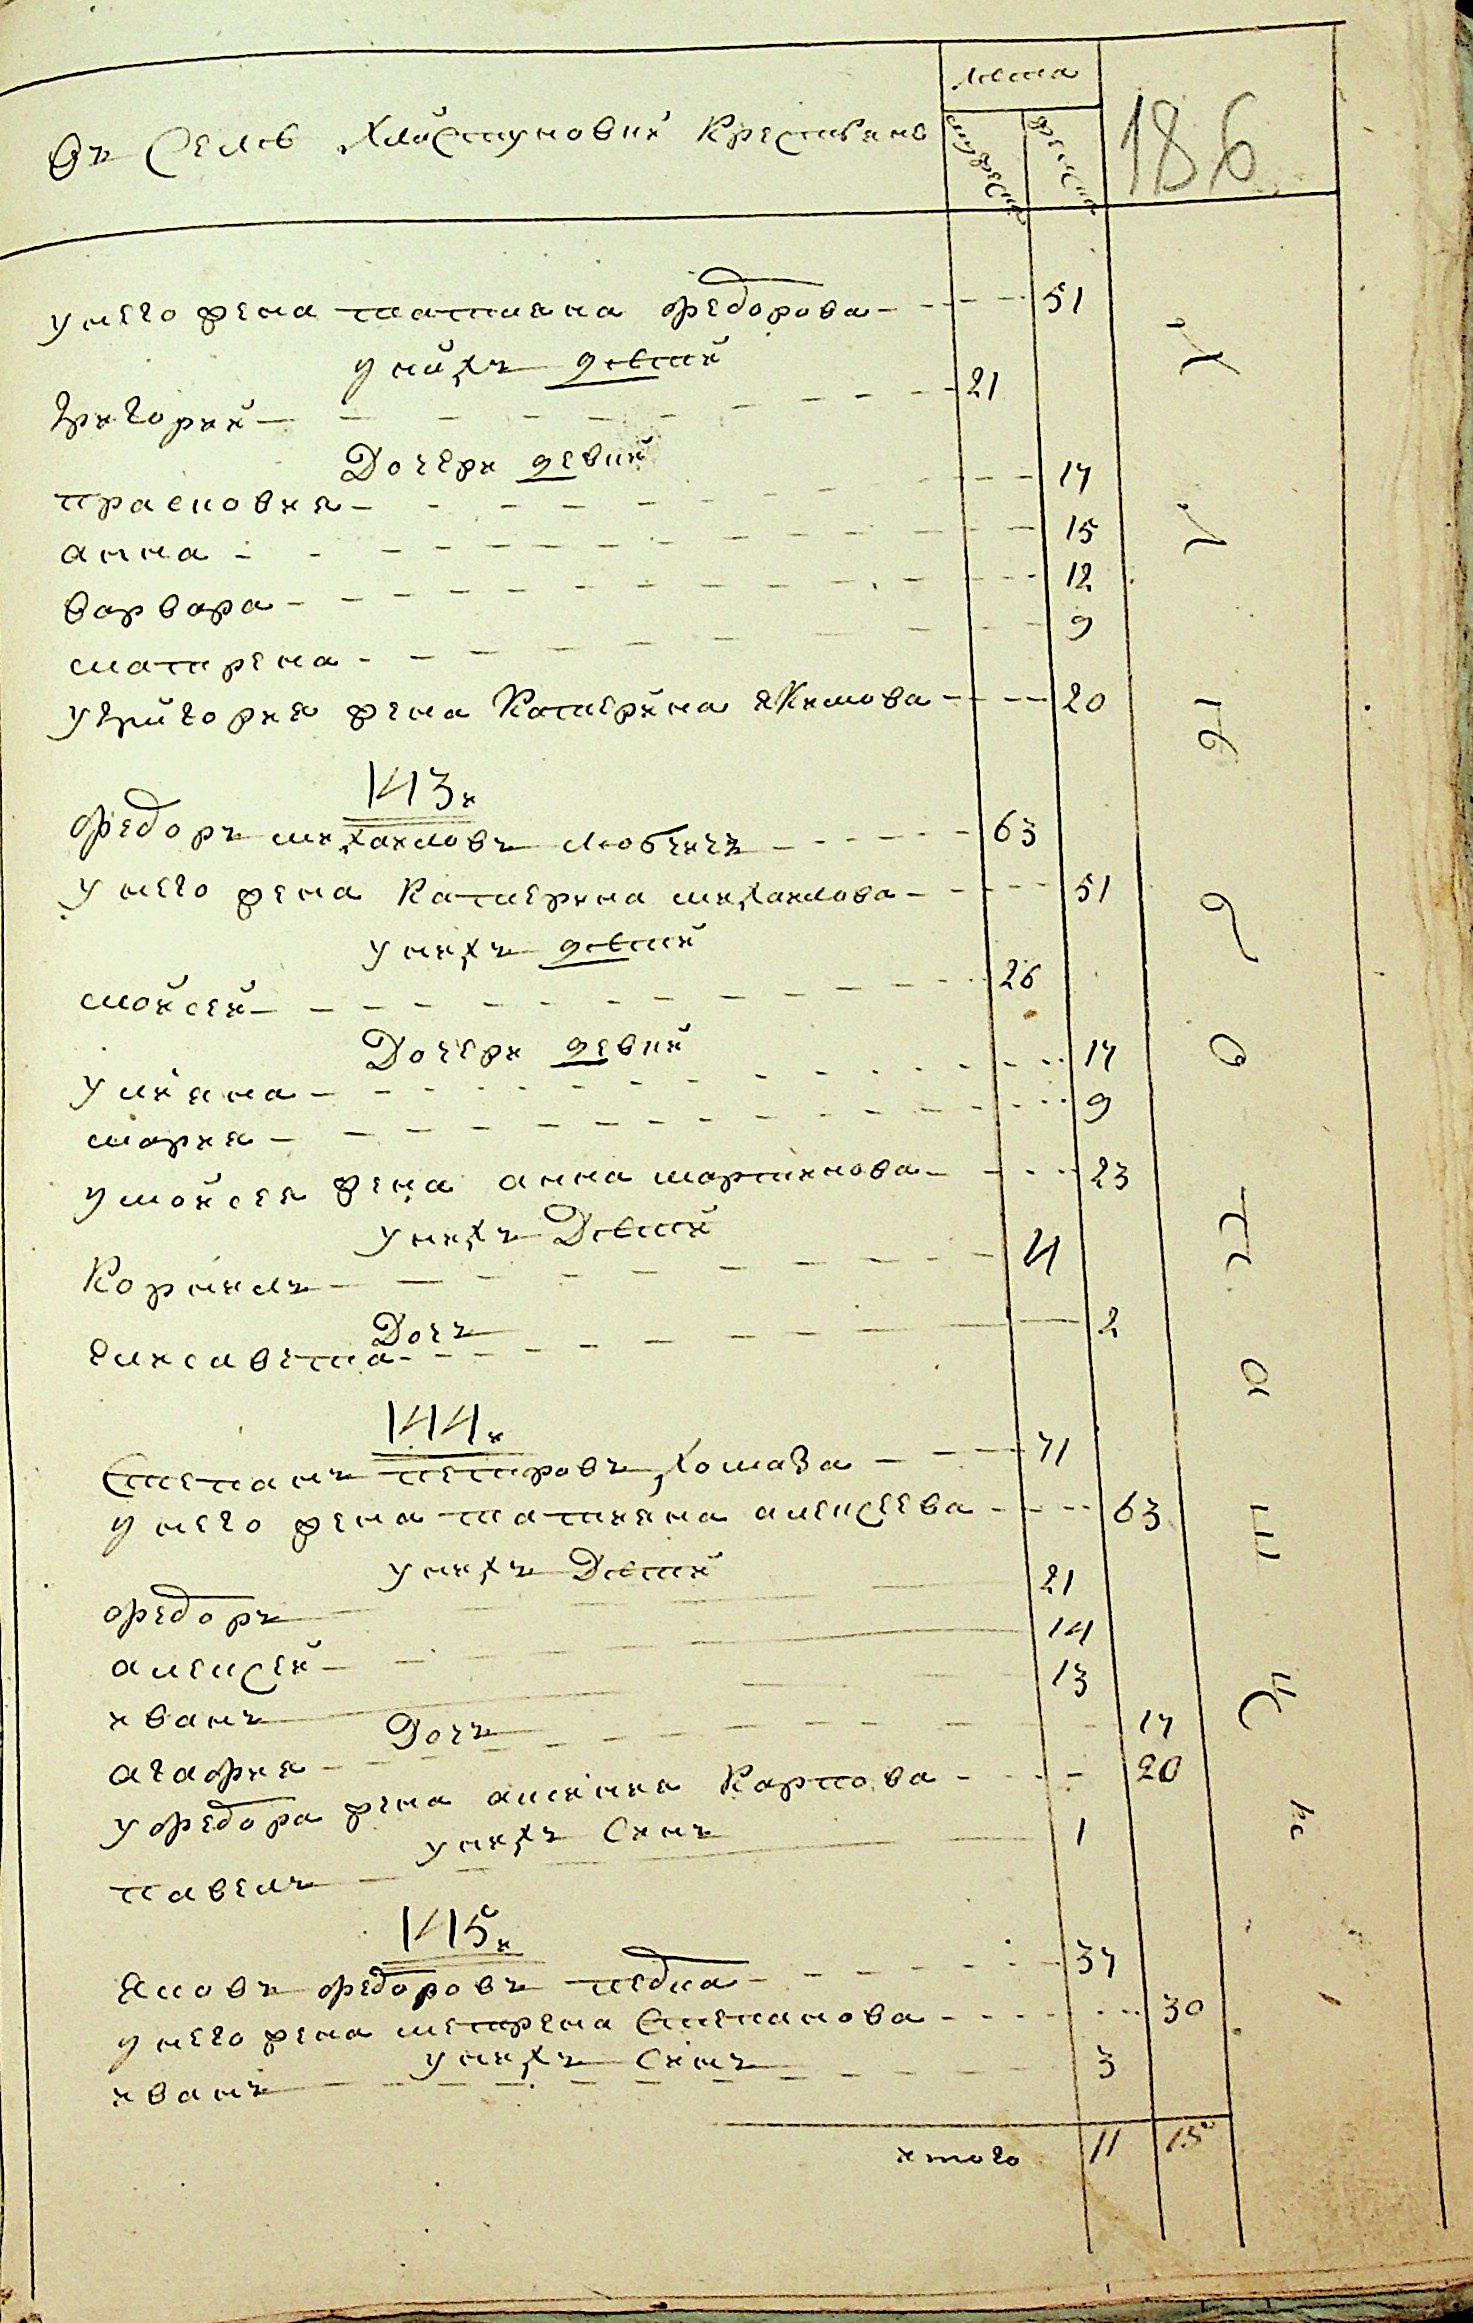 лета
Въ Селѣ Хлистуновки Крестьянъ
мужеска
женска
186
унего жена татияна федорова 51
унихъ дѣтей
григорий 21
Дочери девки
прасковия 17
анна 15
варвара 12
матрена 9
угригория жена Катерина якимова 20
143й
федоръ михаиловъ
унего жена Катерина михаилова 51
унихъ дѣтей
мойсей 26
Дочери девки
улияна 17
мария 9
умойсея жена анна мартинова 23
унихъ Дѣтей
Корнилъ 4
Дочъ
елисавета 2
144й
Степанъ петровъ Хомаза 71
унего жена татияна алексеева 63
унихъ Дѣтей
федоръ 21
алексей 14
иванъ 13
Дочъ
агафия 17
уфедора жена Карпова 20
унихъ Синъ
павелъ 1
145й
яковъ федоровъ педка 37
унего жена метрена Степанова 30
унихъ Синъ
иванъ 3
итого 11 15